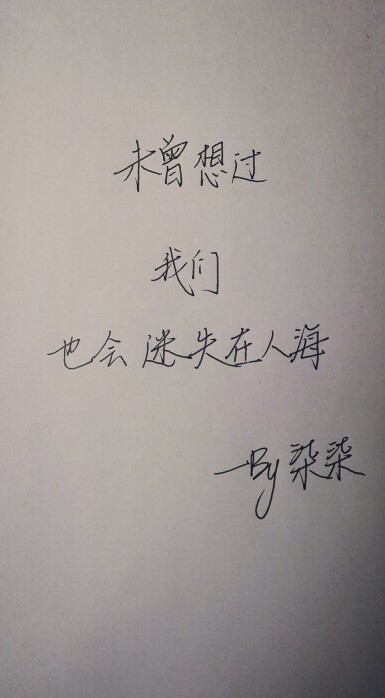 未曾想过
我们
也会迷失在人海
—By柒柒